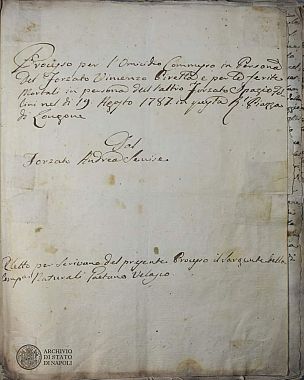 Processo per l'Omicidio Commesso in Persona
del Forzato Vincenzo Piretti e per le ferite
Mortali in persona dell'altro Forzato
nel dì 19 Agosto 1787 in questa R. Piazza
di Longone
Dal
Forzato Andrea
Eletto per Scrivano del presente Processo il Sargente della
Gaetano Velasco
ARCHIVIO
DI STATO
DI NAPOLI